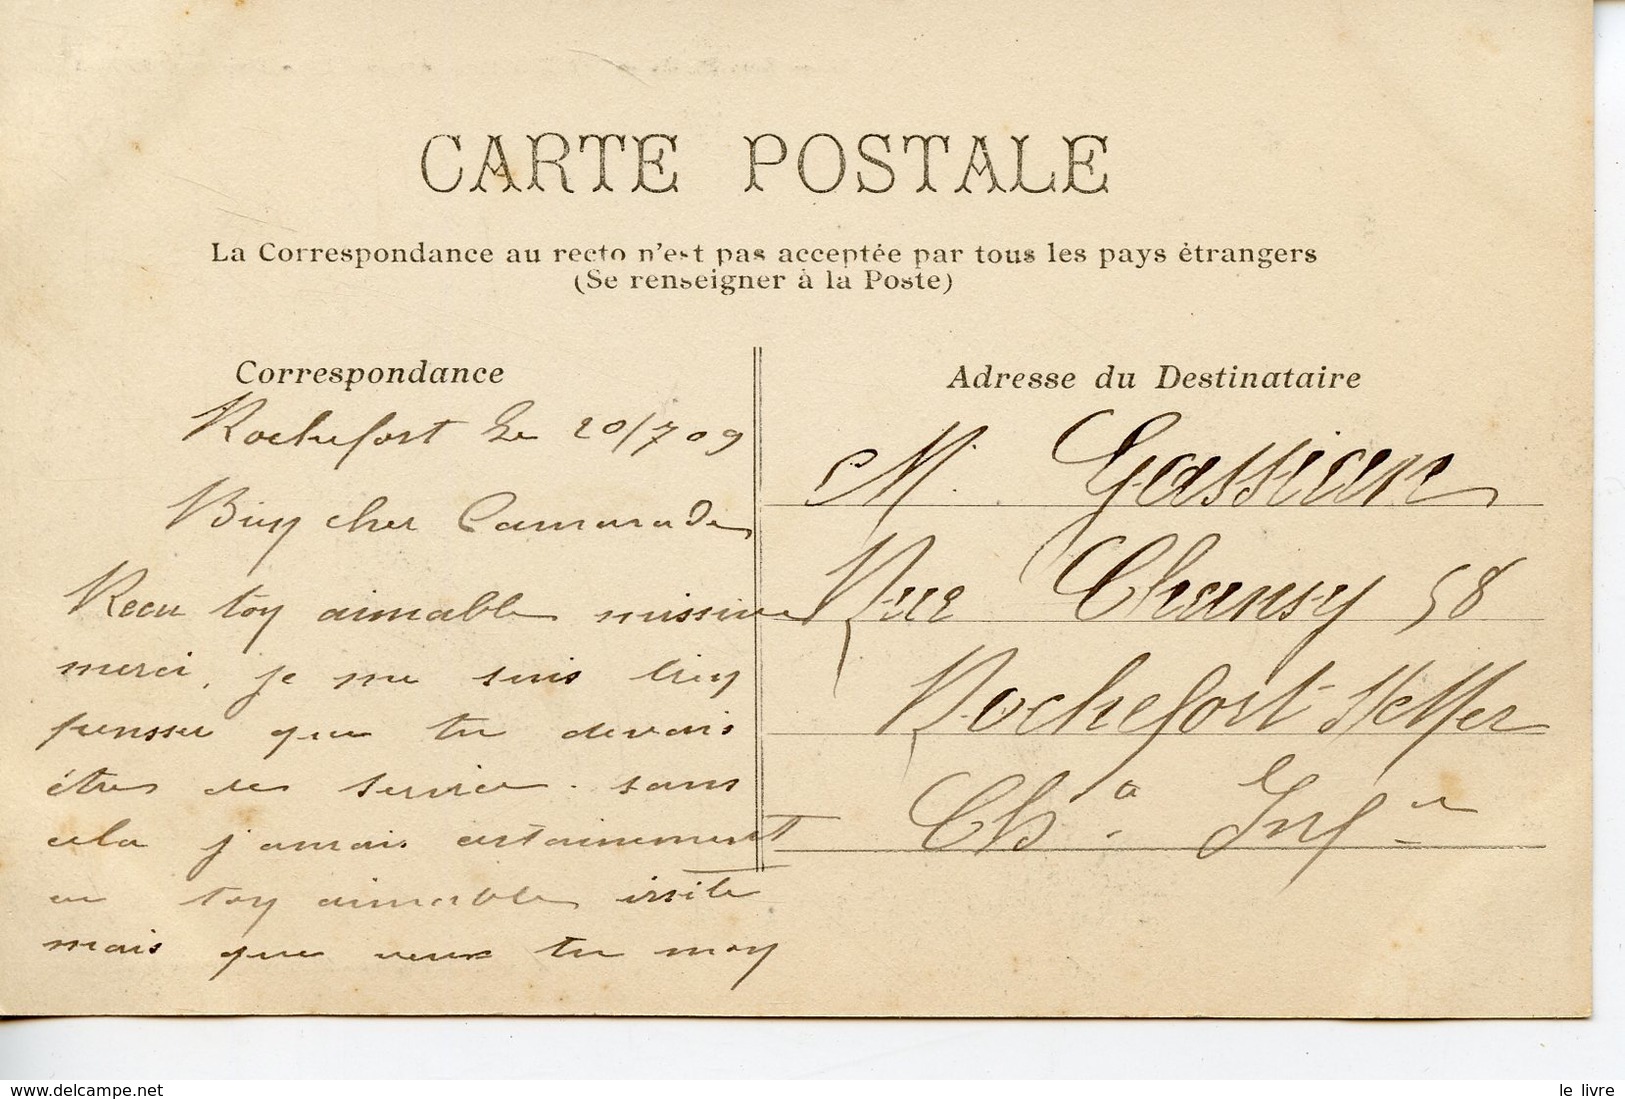 CARTE POSTALE
La Correspondance au recto n'est pas acceptée par tous les pays étrangers
(Se renseigner à la Poste)
Correspondance
Rochefort Le 20/7 09
Bien cher Camarade
Recu ton aimable missive
merci, je me suis bien
pensser que tu devais
être de service. sans
cela j'amais certainement
eu ton aimable visite
mais que veux tu mon
Adresse du Destinataire
M. Gassian
Rue Chansy 58
Rochefort s/Mer
Ch Infre
delcampe.net
le_livre